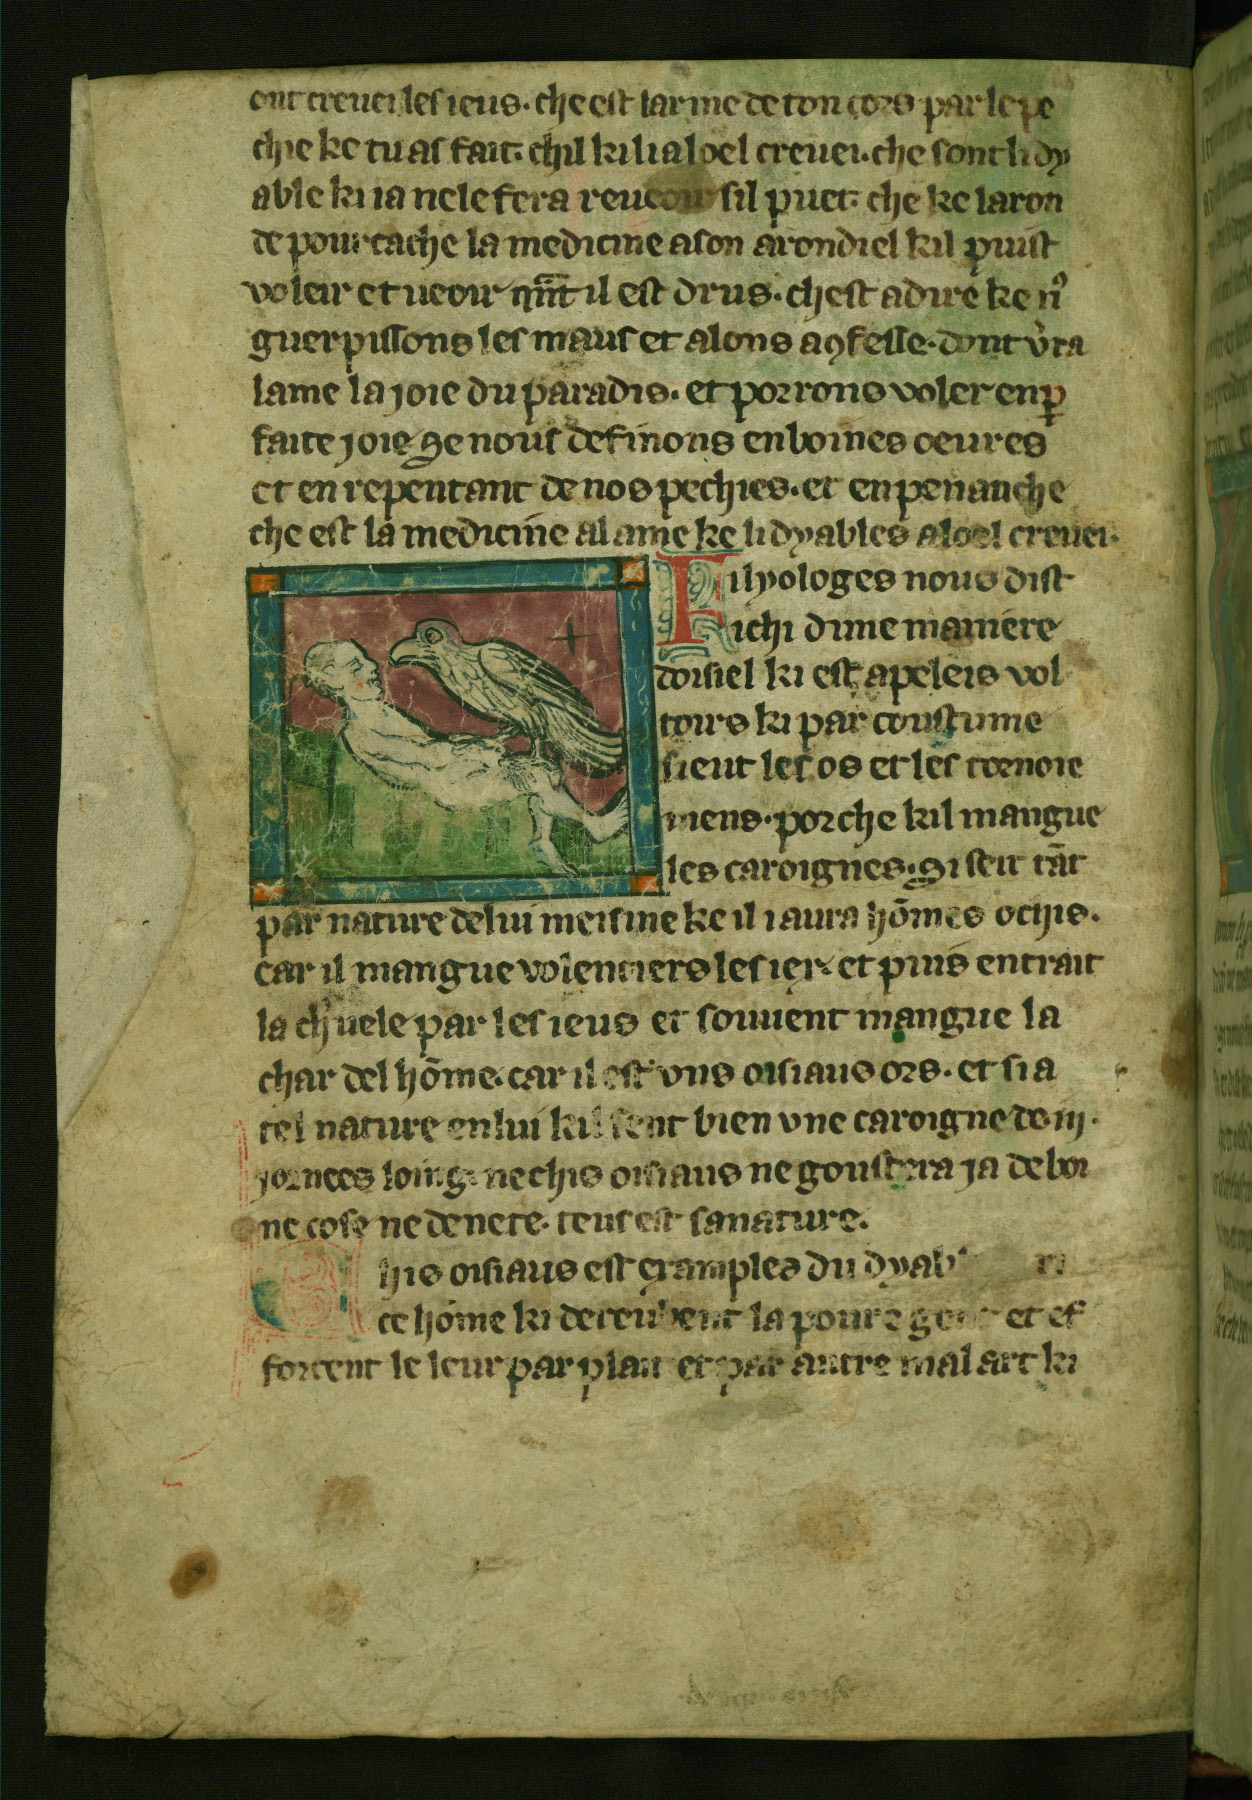 ont creuei les ieus. che est larme de ton cors par le pe
chie ke tu as fait. chil ki li a loel creuei. che sont li dy
able ki ia ne le fera reueoir sil puet. che ke laron
de pourcache la medicine a son arondiel kil puist
voleir et ueoir qñt il est drus. chest a dire ke nꝰ
guerpissons les maus et alons a ꝯfesse. dont v̾ra
lame la joie du paradis. et porrons voler en ꝑ
faite joie se nous definons en boines oeures
et en repentant de nos pechies. et en penanche
che est la medicine al ame ke li dyables a loel creuei.
Filyologes nous dist
ichi dune maniere
doisiel ki est apeleis vol
toirs ki par coustume
sieut les os et les tornoie
mens. por che kil mangue
les caroignes. Si seit tāt
par nature de lui meisme ke il i aura hōmes ochis.
car il mangue volentiers les ier. et puis entrait
la ch'uele par les ieus et souuent mangue la
char del hōme. car il est vns oisiaus ors. et si a
tel nature en lui kil sent bien vne caroigne de iij.
jornees loing. ne chis oisiaus ne goustera ja de boi
ne cose ne de nete. teus est sa nature.
his oisiaus est examples du dyab
ce hōme ki dereubent la poure gent et ef
forcent le leur par plait et par autre mal art ki